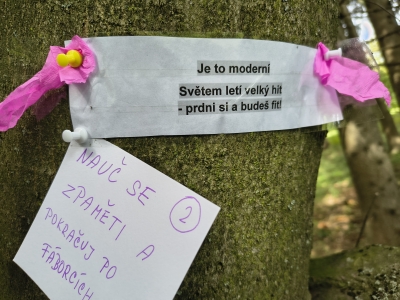 Je to moderní
Světem letí velký hit
- prdni si a budeš fit!
NAUČ SE
ZPAMĚTI A
POKRAČUJ PO
FÁBORCÍCH
2